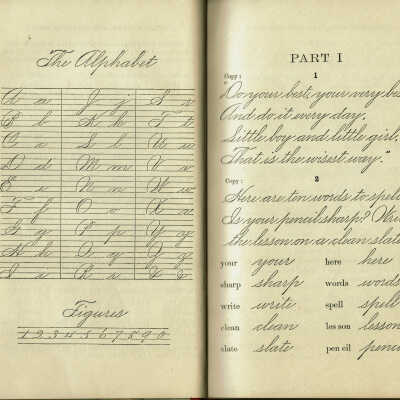 The Alphabet
A a J j S s
B b K k T t
C c L l U u
D d M m V v
E e N n W w
F f O o X x
G g P p Y y
H h Q q Z z
I i R r & &
Figures
1 2 3 4 5 6 7 8 9 0
PART I
Copy: 1
"Do your best, your very
And do it every day,
Little boy and little girl,
That is the wisest way."
Copy: 2
Here are ten words to spell
Is your pencil sharp?
the lesson on a clean slate
your your here here
sharp sharp words words
write write spell spell
clean clean les son lesson
slate slate pen cil